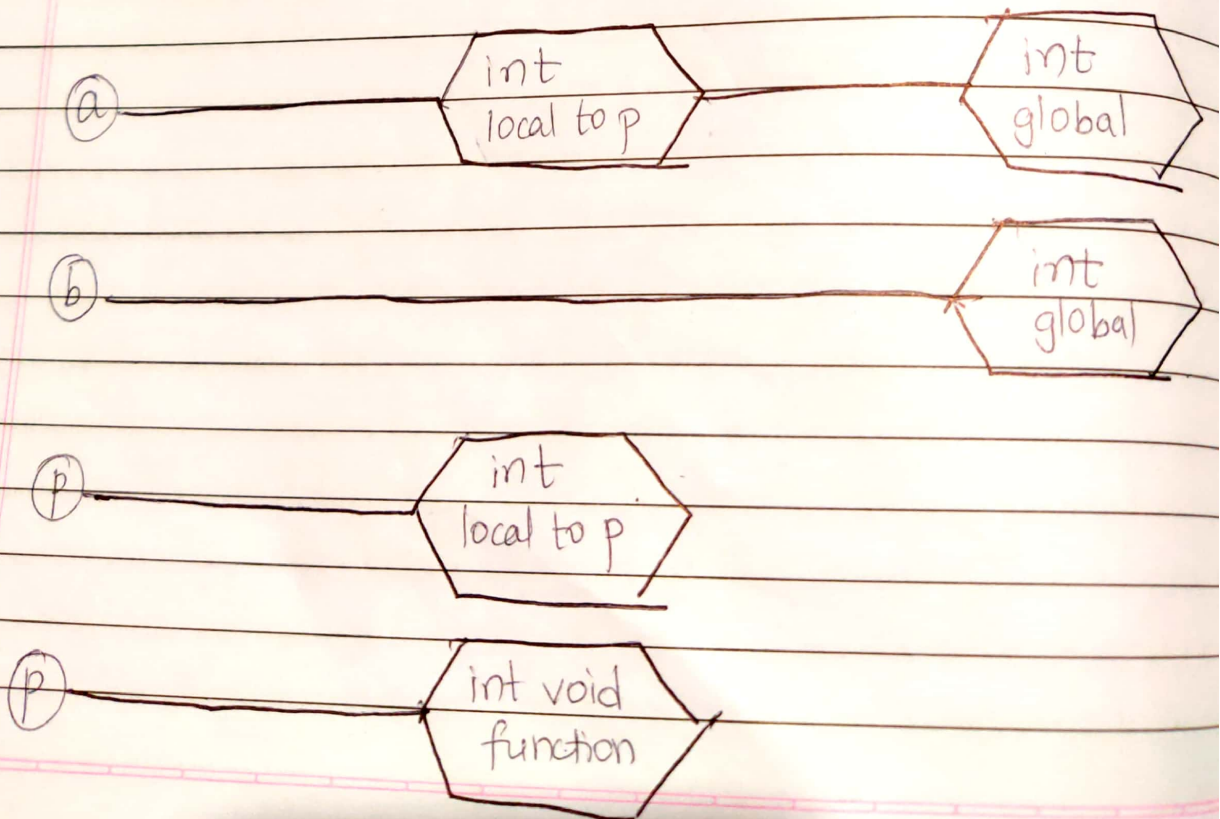 a
int
local to p
int
global
b
int
global
p
int
local to p
p
int void
function